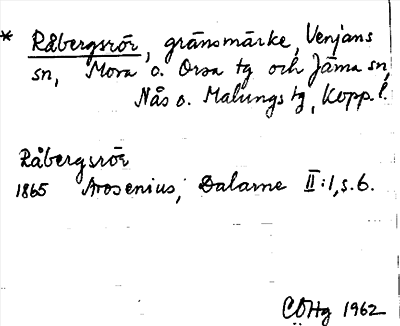 * Råbergsrör, gränsmärke, Venjans
sn, Mora o. Orsa tg och Järna sn,
Nås o. Malungs tg, Kopp. l.
Råbergsrör
1865 Arosenius, Dalarne II:1, s. 6.
COHg 1962